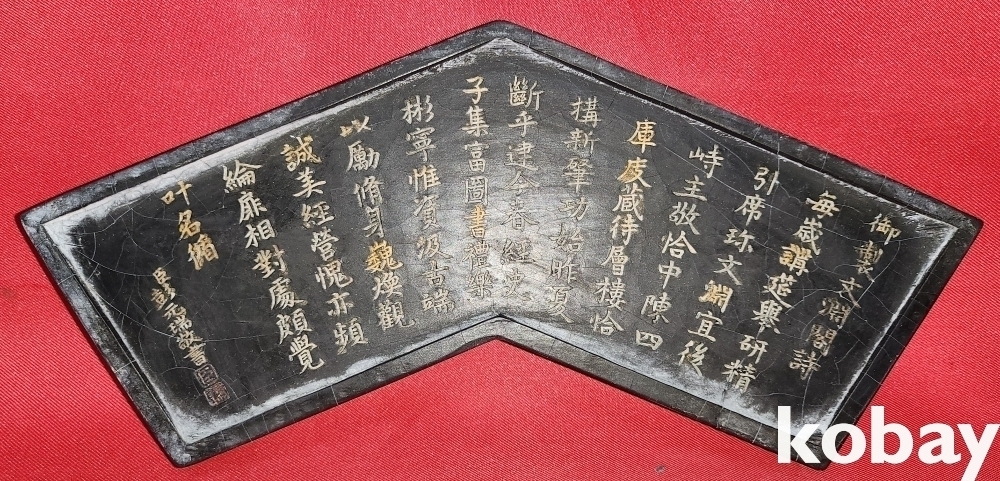 御製文淵閣詩
每歲講筵舉研精
引席珎文淵宜後
峙主敬恰中陳四
庫庋藏待層樓恰
搆新肇功始昨夏
斷手逮今春經史
子集富圖書禮樂
彬寧惟資汲古端
以勵脩身巍煥觀
誠美經營愧亦頻
綸扉相對處頗覺
叶名循
臣彭元瑞敬書
kobay